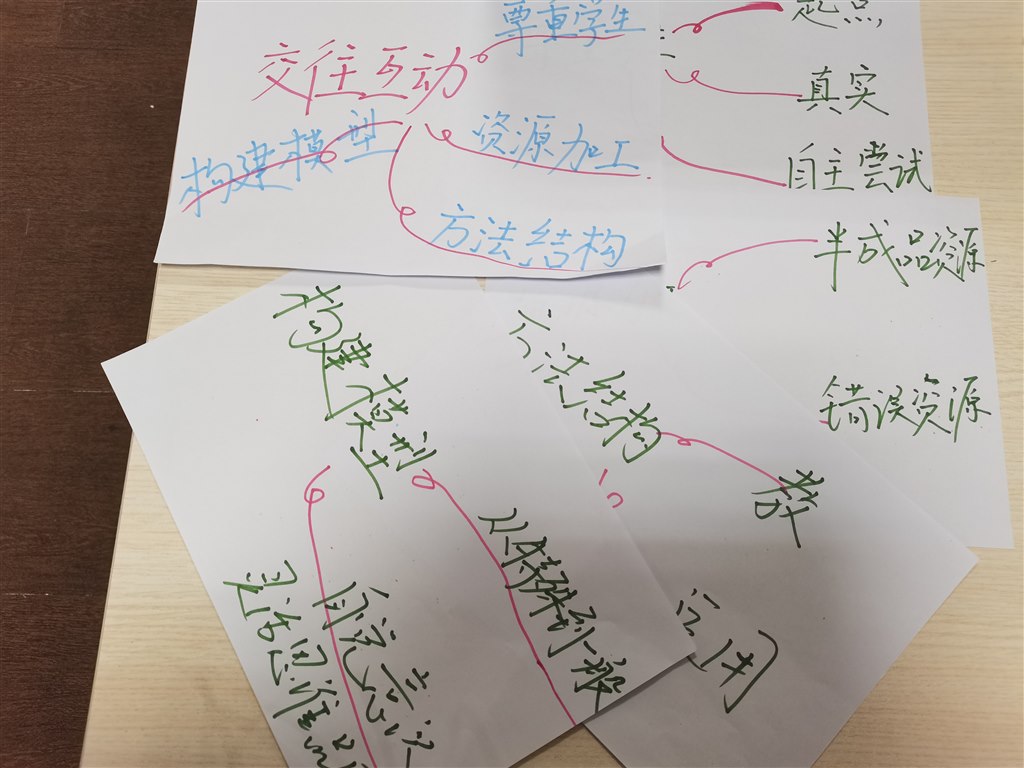 尊重学生
交往互动
构建模型
资源加工
方法结构
起点
真实
自主尝试
半成品资源
错误资源
构建模型
从特殊到一般
方法结构